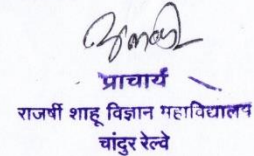 प्राचार्य
राजर्षी शाहू विज्ञान महाविद्यालय
चांदुर रेल्वे